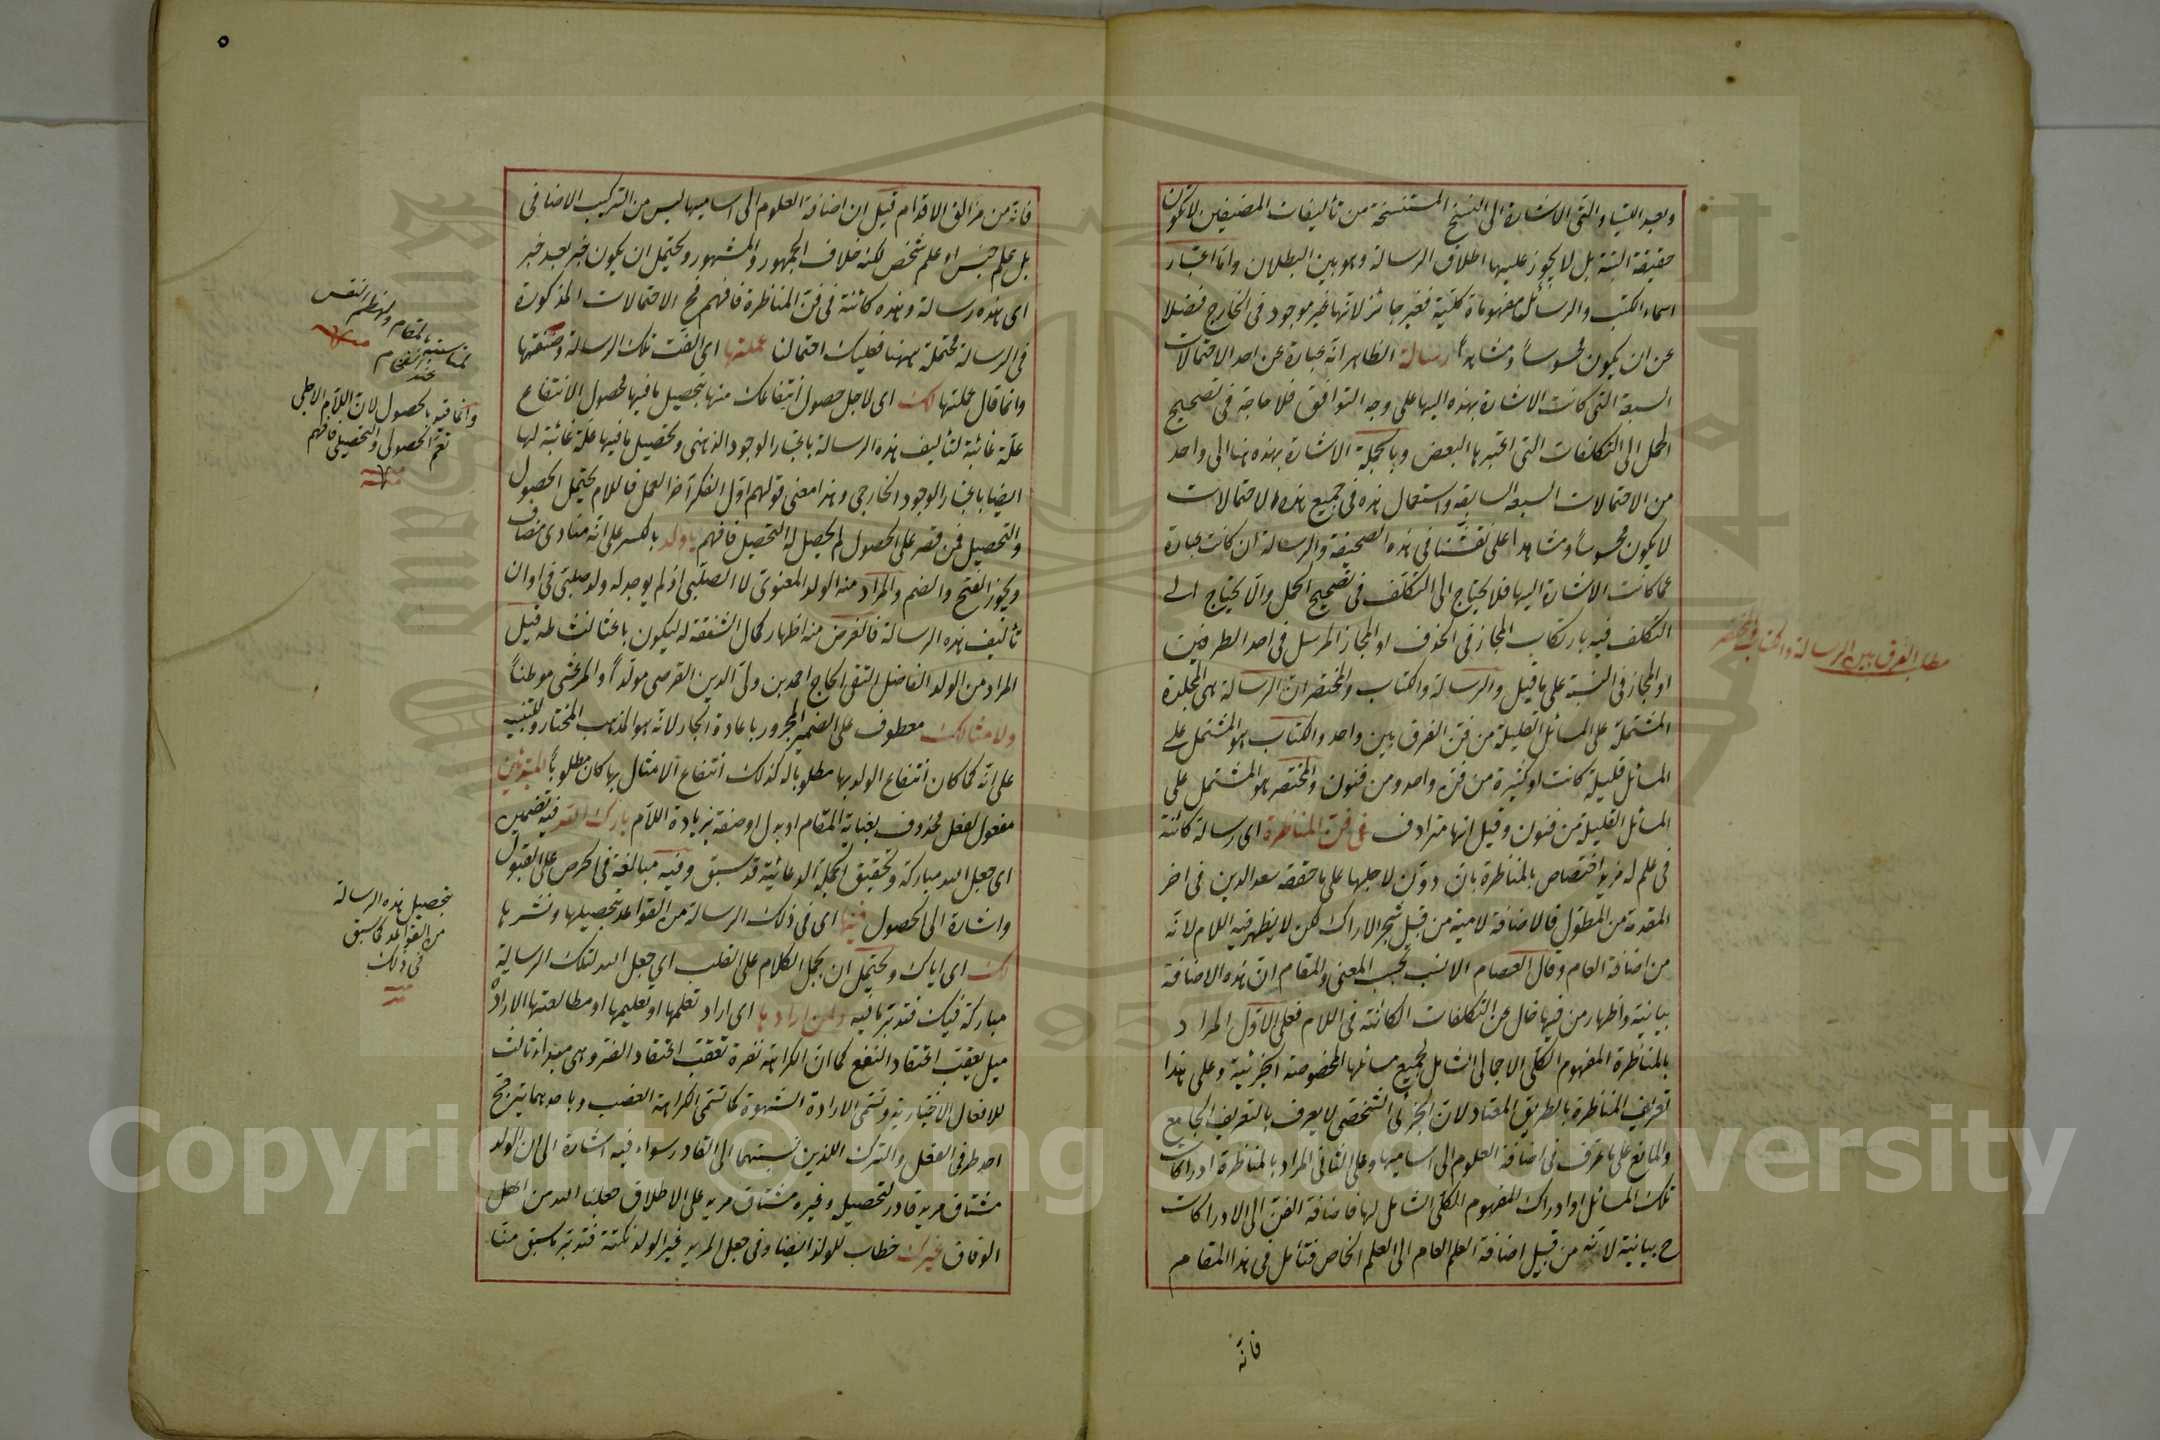 وبعد اللتيا والتى الاشارة الى النسخ المستنسخة من تأليفات المصنفين لا تكون
حقيقة البتة بل لا يجوز عليها اطلاق الرسالة وهو بين البطلان واما اعتبار
اسماء الكتب والرسائل مفهوماة كلية فغير جائز لانها غير موجود فى الخارج فضلا
عن ان يكون محسوسا ومشاهدا رسالة الظاهر انه عبارة عن احد الاحتمالات
السبعة التى كانت الاشارة بهذه اليها على وجه التوافق فلا حاجة فى تصحيح
الحمل الى التكلفات التى اعتبرها البعض وبالجملة الاشارة بهذه هنا الى واحد
من الاحتمالات السبعة السابقة واستعمال هذه فى جميع هذه الاحتمالات
لا يكون محسوسا ومشاهدا على نقشنا فى هذه الصحيفة والرسالة ان كانت عبارة
عما كانت الاشارة اليها فلا يحتاج الى التكلف فى تصحيح الحمل والا يحتاج الى
التكلف فيه بارتكاب المجاز فى الحذف او المجاز المرسل فى احد الطرفين
او المجاز فى النسبة على ما قيل والرسالة والكتاب والمختصر ان الرسالة هى المجلدة
المشتملة على المسائل القليلة من فن الفرق بين واحد والكتاب هو المشتمل على
المسائل قليلة كانت او كثيرة من فن واحد ومن فنون والمختصر هو المشتمل على
المسائل القليلة من فنون وقيل انها مترادف فى فن المناظرة اى رسالة كائنة
فى علم له مزيد اختصاص بالمناظرة بان دون لاجلها على ما حققه سعد الدين فى اخر
المقدمة من المطول فالاضافة لامية من قبيل شجر الاراك لكن لا يظهر فيه اللام لانه
من اضافة العام وقال العصام الانسب بحسب المعنى والمقام ان هذه الاضافة
بيانية واظهار من فيها خال عن التكلفات الكائنة فى اللام فعلى الاول المراد
بالمناظرة المفهوم الكلى الاجمالى الشامل لجميع مسائلها المخصوصة الجزئية وعلى هذا
تعريف المناظرة بالطريق المعتاد لان الجزئى الشخصى لا يعرف بالتعريف الجامع
والمانع على ما عرف فى اضافة العلوم الى اساميها وعلى الثانى المراد بالمناظرة ادراكات
تلك المسائل او ادراك المفهوم الكلى الشامل لها فاضافة الفن الى الادراكات
ح بيانية لانه من قبيل اضافة العلم العام الى العلم الخاص فتأمل فى هذا المقام
فانه
مطلب الفرق بين الرسالة والكتاب والمختصر
٥
فانه من مزالق الاقدام قيل ان اضافة العلوم الى اساميها ليس من التركيب الاضافى
بل علم جنس او علم شخص لكنه خلاف الجمهور والمشهور ويحتمل ان يكون خبر بعد خبر
اى هذه رسالة وهذه كائنة فى فن المناظرة فافهم فح الاحتمالات المذكورة
فى الرسالة محتملة ههنا فعليك احتمالنا عملتها اى الفت تلك الرسالة وصنفتها
وانما قال عملتها لك اى لاجل حصول انتفاعك منها بتحصيل ما فيها فحصول الانتفاع
علة غائية لتأليف هذه الرسالة باعتبار الوجود الذهنى وتحصيل ما فيها علة غائية لها
ايضا باعتبار الوجود الخارجى وهذا معنى قولهم اول الفكر آخر العمل فاللام يحتمل الحصول
والتحصيل فمن قصر على الحصول لم يحصل له التحصيل فافهم يا ولد بالكسر على انه منادى مضاف
ويجوز الفتح والضم والمراد منه الولد المعنوى لا الصلبى اذ لم يوجد له ولد صلبى فى اوان
تأليف هذه الرسالة فالغرض منه اظهار كمال الشفقة له ليكون باعثا لنشاطه قيل
المراد من الولد الفاضل التقى الحاج احمد بن ولى الدين القرصى مولدا والمرعشى موطنا
ولامثالك معطوف على الضمير المجرور باعادة الجار لانه هو المذهب المختار وللتنبيه
على انه كما كان انتفاع الولد بها مطلوبا له كذلك انتفاع الامثال بها كان مطلوبا المبتدئين
مفعول لفعل محذوف بعناية المقام او بدل او صفة بزيادة اللام بارك الله فيه تضمين
اى جعل الله مباركة وتحقيق الجملة الدعائية قد سبق وفيه مبالغة فى الحرص على القبول
واشارة الى الحصول فيها اى فى ذلك الرسالة من القواعد بتحصيلها ونشرها
لك اى اياك ويحتمل ان يحمل الكلام على القلب اى جعل الله لتلك الرسالة
مباركة فيك فتدبر ما فيه ولمن ارادها اى اراد تعلمها او تعليمها او مطالعتها الارادة
ميل يعقب اعتقاد النفع كما ان الكراهة نفرة تعقب اعتقاد الضر وهى مبدأ ثالث
للافعال الاختيارية وتسمى الارادة الشهوة كما تسمى الكراهة الغضب وباحدهما يترجح
احد طرفى الفعل والترك اللذين نسبتهما الى القادر سواء فيه اشارة الى ان الولد
مشتاق مريد قادر لتحصيله وغيره مشتاق مريد على الاطلاق جعلنا الله من اهل
الوفاق غيرك خطاب للولد ايضا وفى جعل المريد غير الولد نكتة فتدبر ما سبق منا
بالمقام ولهضم النفس
منه
وانما قيد بالحصول لان اللام الاجلى
تعم الحصولى والتحصيلى فافهم
منه
بتحصيل هذه الرسالة
من القواعد كما سبق
فى ذلك
منه
Copyright © King Saud University